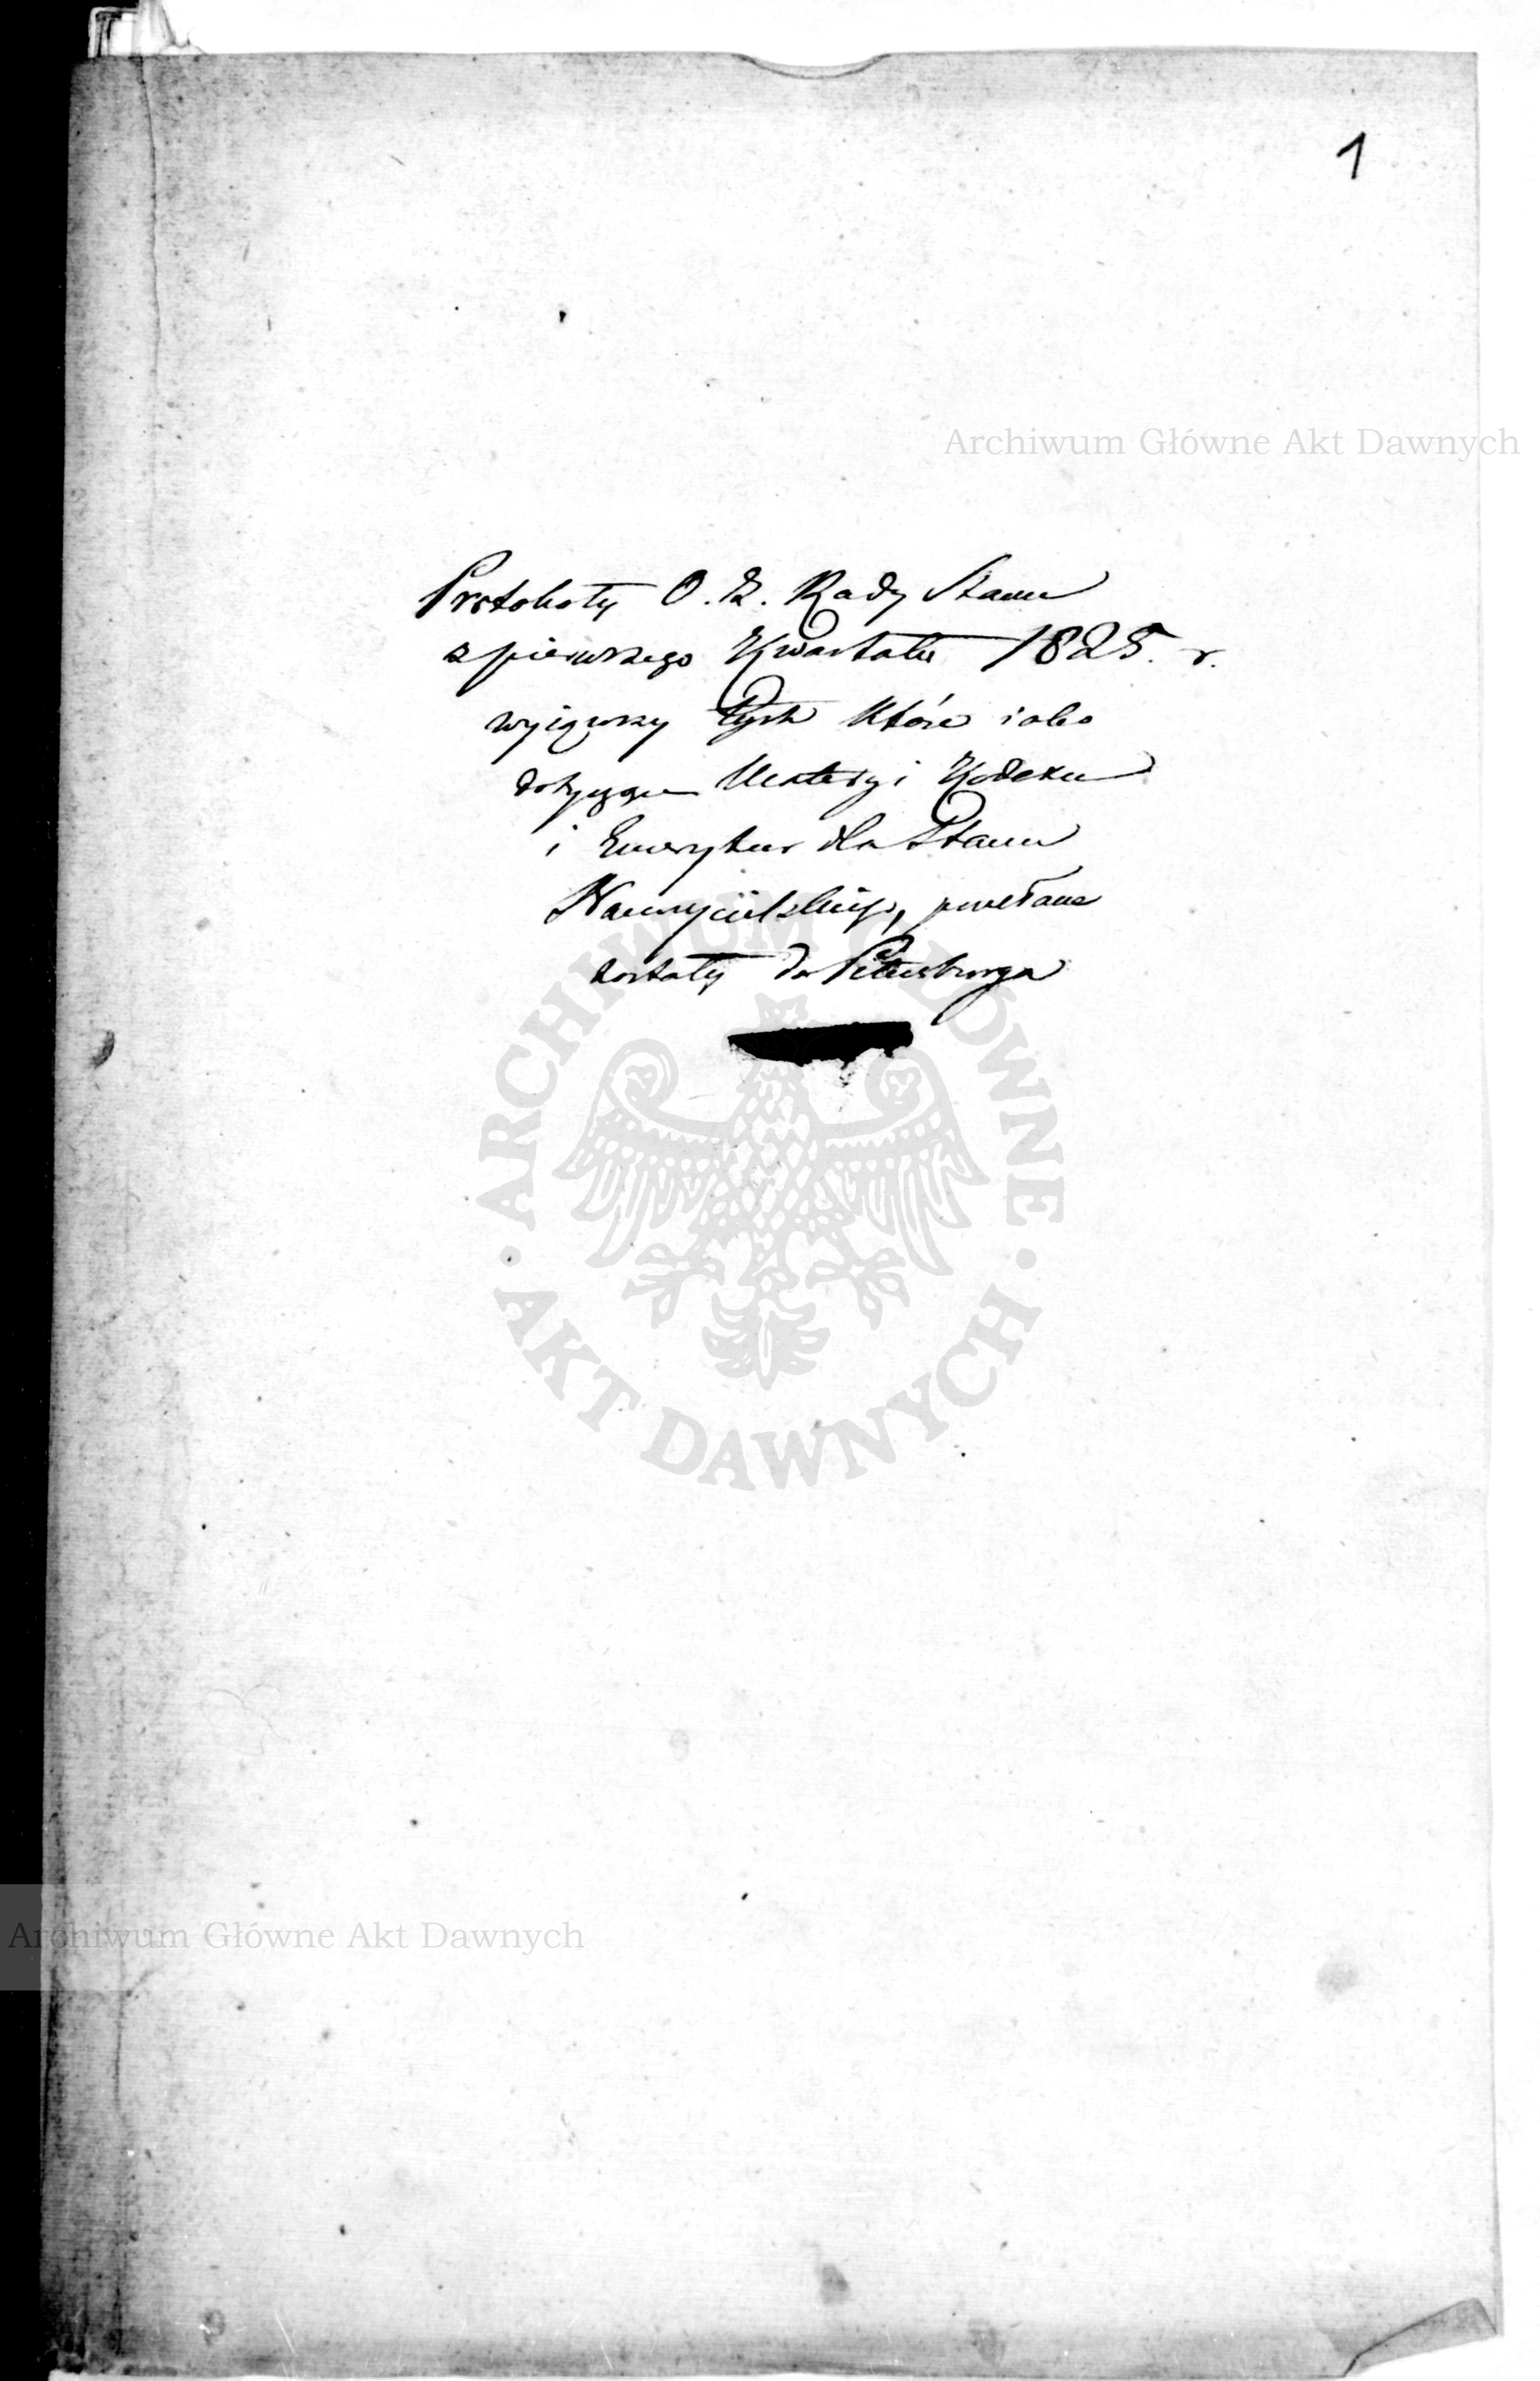 1
Archiwum Główne Akt Dawnych
Protokoły O. Z. Rady Stanu
z pierwszego Kwartału 1825. r.
wyiąwszy tych które iako
dotyczące Materyi Kodexu
i Emerytur dla Stanu
Nauczycielskiego, przesłane
zostały do Petersburga
ARCHIWUM GŁÓWNE
AKT DAWNYCH
Archiwum Główne Akt Dawnych